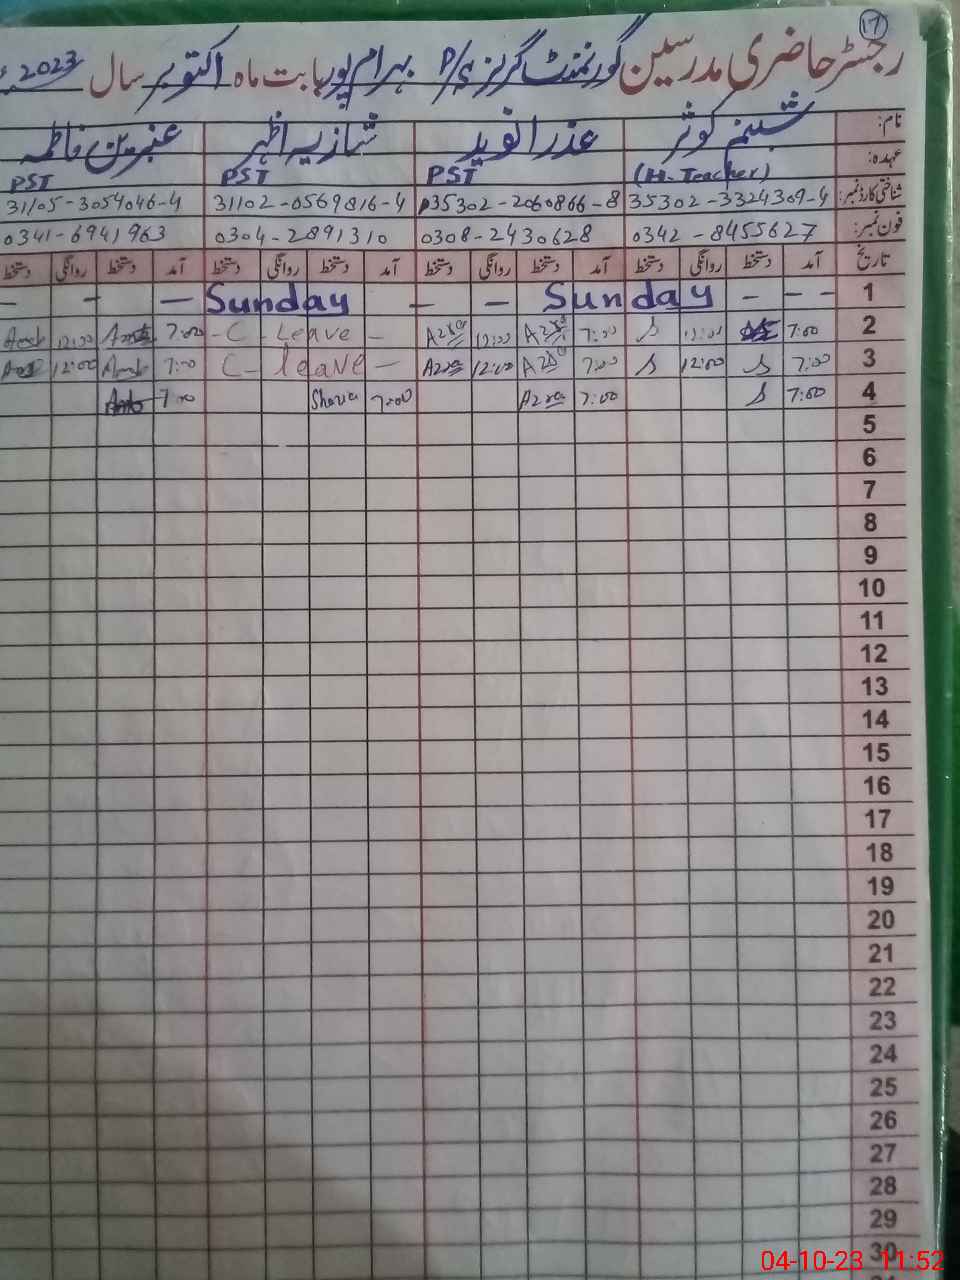 ۱۷
رجسٹر حاضری مدرسین گورنمنٹ گرلز P/S بہرام پور بابت ماہ اکتوبر سال 2023ء
نام: شبنم کوثر عذرا نوید شازیہ اظہر عنبرین فاطمہ
عہدہ: (H. Teacher) PST PST PST
شناختی کارڈ نمبر: 35302-3324309-4 35302-2060866-8 31102-0569816-4 31105-3054046-4
فون نمبر: 0342-8455627 0308-2430628 0304-2891310 0341-6941963
تاریخ آمد دستخط روانگی دستخط آمد دستخط روانگی دستخط آمد دستخط روانگی دستخط آمد دستخط روانگی دستخط
1 - - - Sunday - - Sunday - - -
2 7:00 12:00 S 7:00 Azra 12:00 Azra - C - Leave - 7:00 12:00
3 7:00 S 12:00 S 7:00 Azra 12:00 Azra C - leave - 7:00 12:00
4 7:00 S 7:00 Azra 7:00 7:00
5
6
7
8
9
10
11
12
13
14
15
16
17
18
19
20
21
22
23
24
25
26
27
28
29
30
04-10-23 11:52